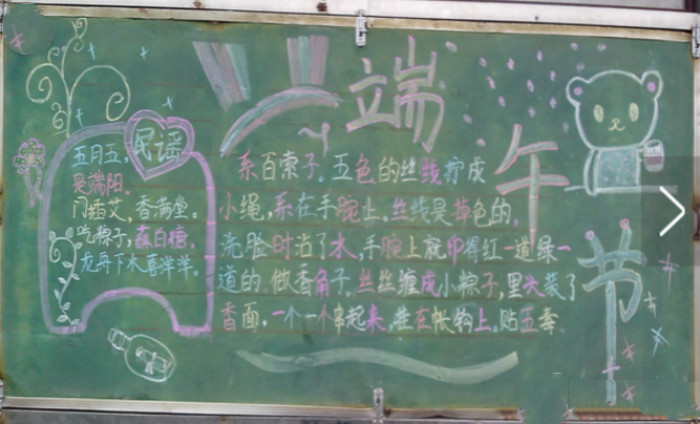 端午节
民谣
五月五，
是端阳。
门插艾，香满堂。
吃粽子，蘸白糖。
龙舟下水喜洋洋。
系百索子。五色的丝线拧成
小绳，系在手腕上。丝线是掉色的，
洗脸时沾了水，手腕上就印得红一道绿一
道的。做香角子。丝丝缠成小粽子，里头装了
香面，一个一个串起来，挂在帐钩上。贴五毒